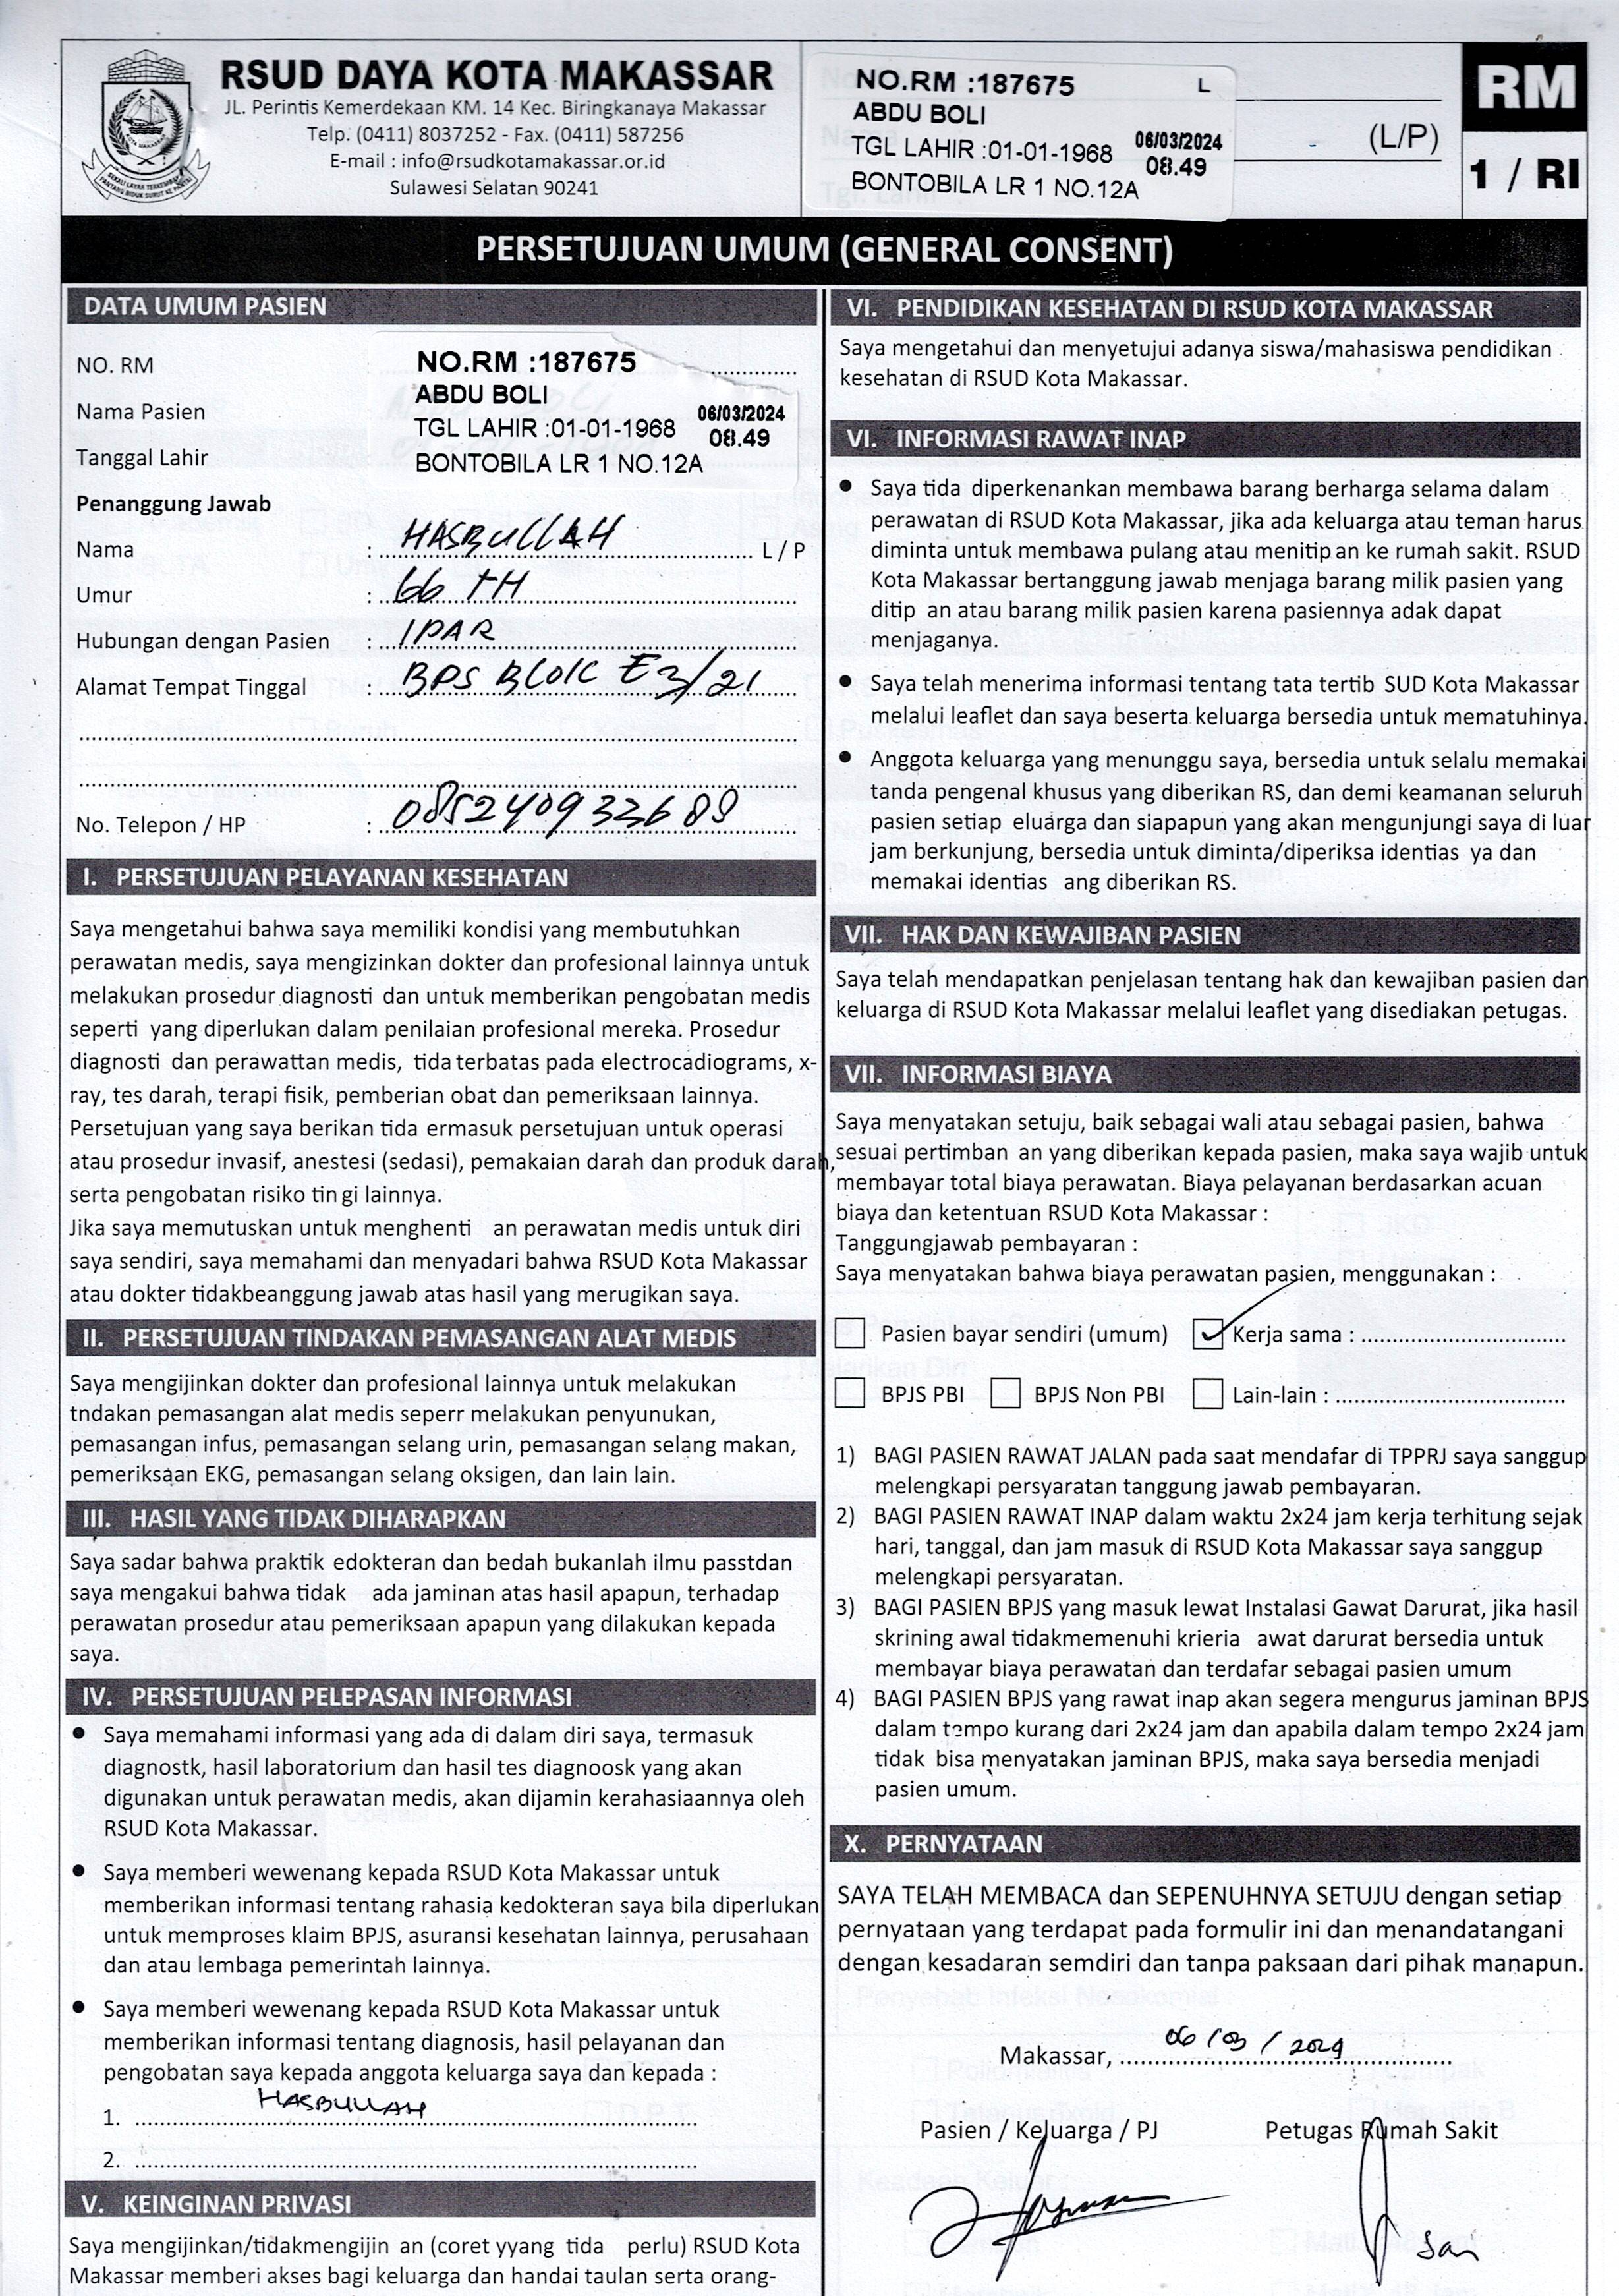 RSUD DAYA KOTA MAKASSAR
JL. Perintis Kemerdekaan KM. 14 Kec. Biringkanaya Makassar
Telp. (0411) 8037252 - Fax. (0411) 587256
E-mail : info@rsudkotamakassar.or.id
Sulawesi Selatan 90241
NO.RM :187675 L
ABDU BOLI
TGL LAHIR :01-01-1968 06/03/2024
08.49
BONTOBILA LR 1 NO.12A
(L/P)
RM
1 / RI
PERSETUJUAN UMUM (GENERAL CONSENT)
DATA UMUM PASIEN
NO. RM
NO.RM :187675
Nama Pasien
ABDU BOLI
TGL LAHIR :01-01-1968 06/03/2024
08.49
Tanggal Lahir
BONTOBILA LR 1 NO.12A
Penanggung Jawab
Nama : HASBULLAH L / P
Umur : 66 TH
Hubungan dengan Pasien : IPAR
Alamat Tempat Tinggal : BPS BLOK E3/21
No. Telepon / HP : 085240933688
I. PERSETUJUAN PELAYANAN KESEHATAN
Saya mengetahui bahwa saya memiliki kondisi yang membutuhkan
perawatan medis, saya mengizinkan dokter dan profesional lainnya untuk
melakukan prosedur diagnosti dan untuk memberikan pengobatan medis
seperti yang diperlukan dalam penilaian profesional mereka. Prosedur
diagnosti dan perawattan medis, tida terbatas pada electrocadiograms, x-
ray, tes darah, terapi fisik, pemberian obat dan pemeriksaan lainnya.
Persetujuan yang saya berikan tida ermasuk persetujuan untuk operasi
atau prosedur invasif, anestesi (sedasi), pemakaian darah dan produk darah,
serta pengobatan risiko tin gi lainnya.
Jika saya memutuskan untuk menghenti an perawatan medis untuk diri
saya sendiri, saya memahami dan menyadari bahwa RSUD Kota Makassar
atau dokter tidakbeanggung jawab atas hasil yang merugikan saya.
II. PERSETUJUAN TINDAKAN PEMASANGAN ALAT MEDIS
Saya mengijinkan dokter dan profesional lainnya untuk melakukan
tndakan pemasangan alat medis seperr melakukan penyunukan,
pemasangan infus, pemasangan selang urin, pemasangan selang makan,
pemeriksaan EKG, pemasangan selang oksigen, dan lain lain.
III. HASIL YANG TIDAK DIHARAPKAN
Saya sadar bahwa praktik edokteran dan bedah bukanlah ilmu passtdan
saya mengakui bahwa tidak ada jaminan atas hasil apapun, terhadap
perawatan prosedur atau pemeriksaan apapun yang dilakukan kepada
saya.
IV. PERSETUJUAN PELEPASAN INFORMASI
● Saya memahami informasi yang ada di dalam diri saya, termasuk
diagnostk, hasil laboratorium dan hasil tes diagnoosk yang akan
digunakan untuk perawatan medis, akan dijamin kerahasiaannya oleh
RSUD Kota Makassar.
● Saya memberi wewenang kepada RSUD Kota Makassar untuk
memberikan informasi tentang rahasia kedokteran saya bila diperlukan
untuk memproses klaim BPJS, asuransi kesehatan lainnya, perusahaan
dan atau lembaga pemerintah lainnya.
● Saya memberi wewenang kepada RSUD Kota Makassar untuk
memberikan informasi tentang diagnosis, hasil pelayanan dan
pengobatan saya kepada anggota keluarga saya dan kepada :
1. HASBULLAH
2.
V. KEINGINAN PRIVASI
Saya mengijinkan/tidakmengijin an (coret yyang tida perlu) RSUD Kota
Makassar memberi akses bagi keluarga dan handai taulan serta orang-
VI. PENDIDIKAN KESEHATAN DI RSUD KOTA MAKASSAR
Saya mengetahui dan menyetujui adanya siswa/mahasiswa pendidikan
kesehatan di RSUD Kota Makassar.
VI. INFORMASI RAWAT INAP
● Saya tida diperkenankan membawa barang berharga selama dalam
perawatan di RSUD Kota Makassar, jika ada keluarga atau teman harus
diminta untuk membawa pulang atau menitip an ke rumah sakit. RSUD
Kota Makassar bertanggung jawab menjaga barang milik pasien yang
ditip an atau barang milik pasien karena pasiennya adak dapat
menjaganya.
● Saya telah menerima informasi tentang tata tertib SUD Kota Makassar
melalui leaflet dan saya beserta keluarga bersedia untuk mematuhinya.
● Anggota keluarga yang menunggu saya, bersedia untuk selalu memakai
tanda pengenal khusus yang diberikan RS, dan demi keamanan seluruh
pasien setiap eluarga dan siapapun yang akan mengunjungi saya di luar
jam berkunjung, bersedia untuk diminta/diperiksa identias ya dan
memakai identias ang diberikan RS.
VII. HAK DAN KEWAJIBAN PASIEN
Saya telah mendapatkan penjelasan tentang hak dan kewajiban pasien dan
keluarga di RSUD Kota Makassar melalui leaflet yang disediakan petugas.
VII. INFORMASI BIAYA
Saya menyatakan setuju, baik sebagai wali atau sebagai pasien, bahwa
sesuai pertimban an yang diberikan kepada pasien, maka saya wajib untuk
membayar total biaya perawatan. Biaya pelayanan berdasarkan acuan
biaya dan ketentuan RSUD Kota Makassar :
Tanggungjawab pembayaran :
Saya menyatakan bahwa biaya perawatan pasien, menggunakan :
☐ Pasien bayar sendiri (umum) ☑ Kerja sama :
☐ BPJS PBI ☐ BPJS Non PBI ☐ Lain-lain :
1) BAGI PASIEN RAWAT JALAN pada saat mendafar di TPPRJ saya sanggup
melengkapi persyaratan tanggung jawab pembayaran.
2) BAGI PASIEN RAWAT INAP dalam waktu 2x24 jam kerja terhitung sejak
hari, tanggal, dan jam masuk di RSUD Kota Makassar saya sanggup
melengkapi persyaratan.
3) BAGI PASIEN BPJS yang masuk lewat Instalasi Gawat Darurat, jika hasil
skrining awal tidakmemenuhi krieria awat darurat bersedia untuk
membayar biaya perawatan dan terdafar sebagai pasien umum
4) BAGI PASIEN BPJS yang rawat inap akan segera mengurus jaminan BPJS
dalam tempo kurang dari 2x24 jam dan apabila dalam tempo 2x24 jam
tidak bisa menyatakan jaminan BPJS, maka saya bersedia menjadi
pasien umum.
X. PERNYATAAN
SAYA TELAH MEMBACA dan SEPENUHNYA SETUJU dengan setiap
pernyataan yang terdapat pada formulir ini dan menandatangani
dengan kesadaran semdiri dan tanpa paksaan dari pihak manapun.
Makassar, 06/03/2024
Pasien / Keluarga / PJ Petugas Rumah Sakit